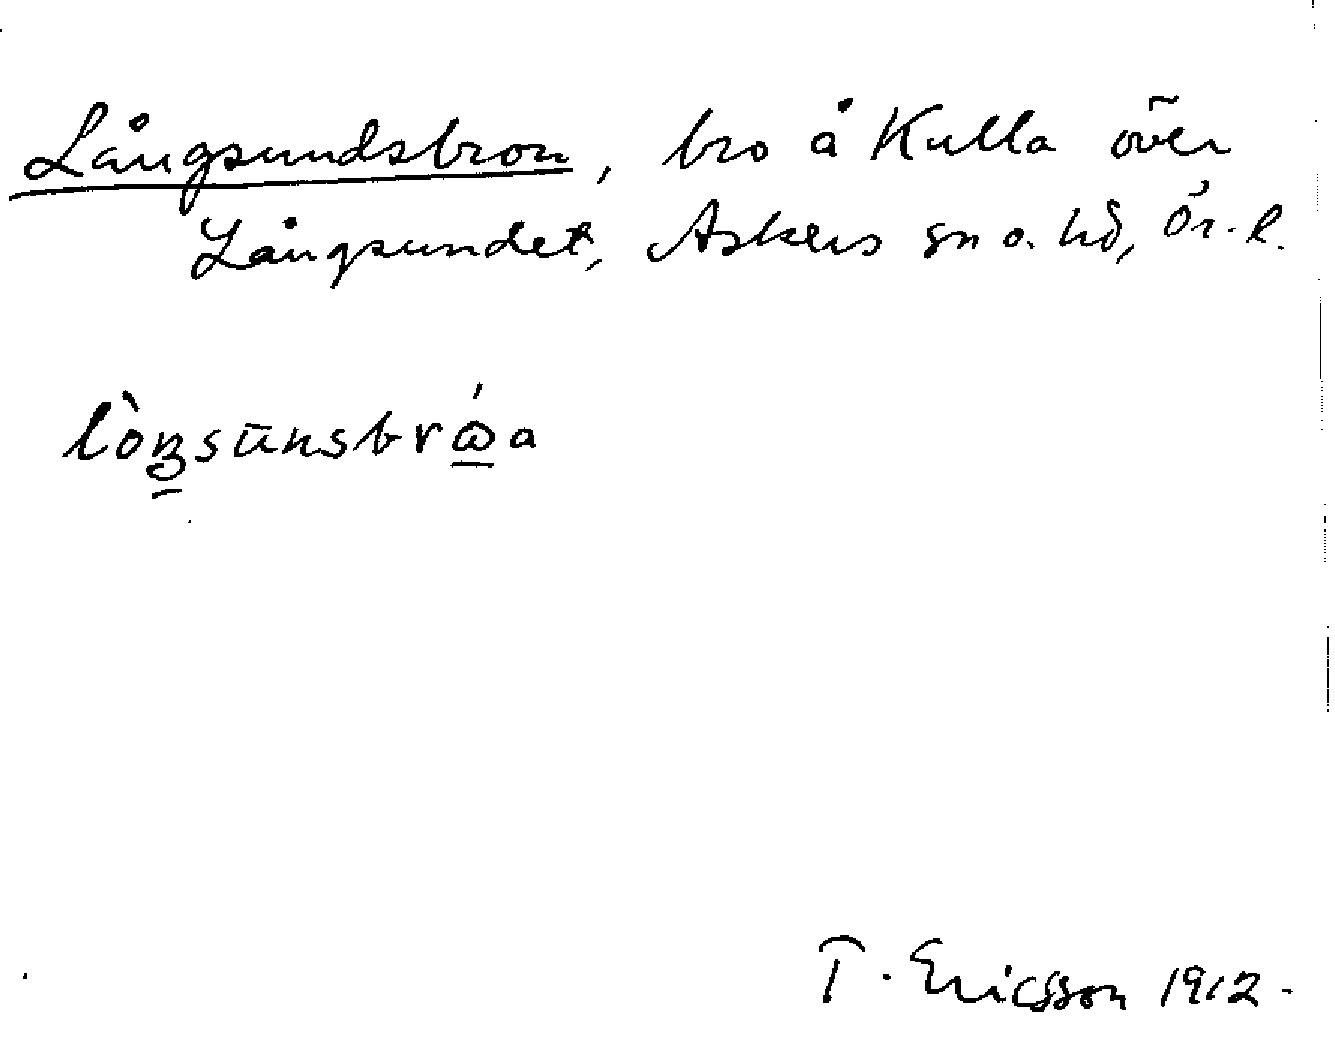 Långsundsbron, bro å Kulla över
Långsundet, Askers sn o. hd, Ör. l.
lòŋsūnsbrɷ́a
T. Ericsson 1912.